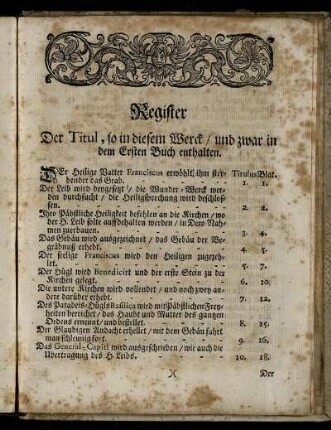 Register
Der Titul, so in diesem Werck / und zwar in
dem Ersten Buch enthalten.
DEr Heilige Vatter Franciscus erwöhlt ihm ster- Titulus Blat.
bender das Grab. 1. 1.
Der Leib wird beygesetzt / die Wunder-Werck wer-
den durchsucht / die Heiligsprechung wird beschlos-
sen. 2. 2.
Ihro Päbstliche Heiligkeit befehlen an die Kirchen / wo
der H. Leib solte auffbehalten werden / in Dero Nah-
men zuerbauen. 3. 4.
Das Gebäu wird außgezeichnet / das Gebäu der Be-
gräbnuß erhebt. 4. 5.
Der seelige Franciscus wird den Heiligen zugezeh-
let. 5. 7.
Der Hügl wird Benedicirt und der erste Stein zu der
Kirchen gelegt. 6. 10.
Die untere Kirchen wird vollendet / und noch zwey an-
dere darüber erhebt. 7. 12.
Des Paradeis-Hügls Basilica wird mit Päbstlichen Frey-
heiten bereichet / das Haubt und Mutter des gantzen
Ordens ernennt / und bestellet. 8. 15.
Der Glaubigen Andacht erhellet / mit dem Gebäu fahrt
man schleunig fort. 9. 16.
Das General-Capitl wird außgeschrieben / wie auch die
Ubertragung des H. Leibs. 10. 18.
)( Der